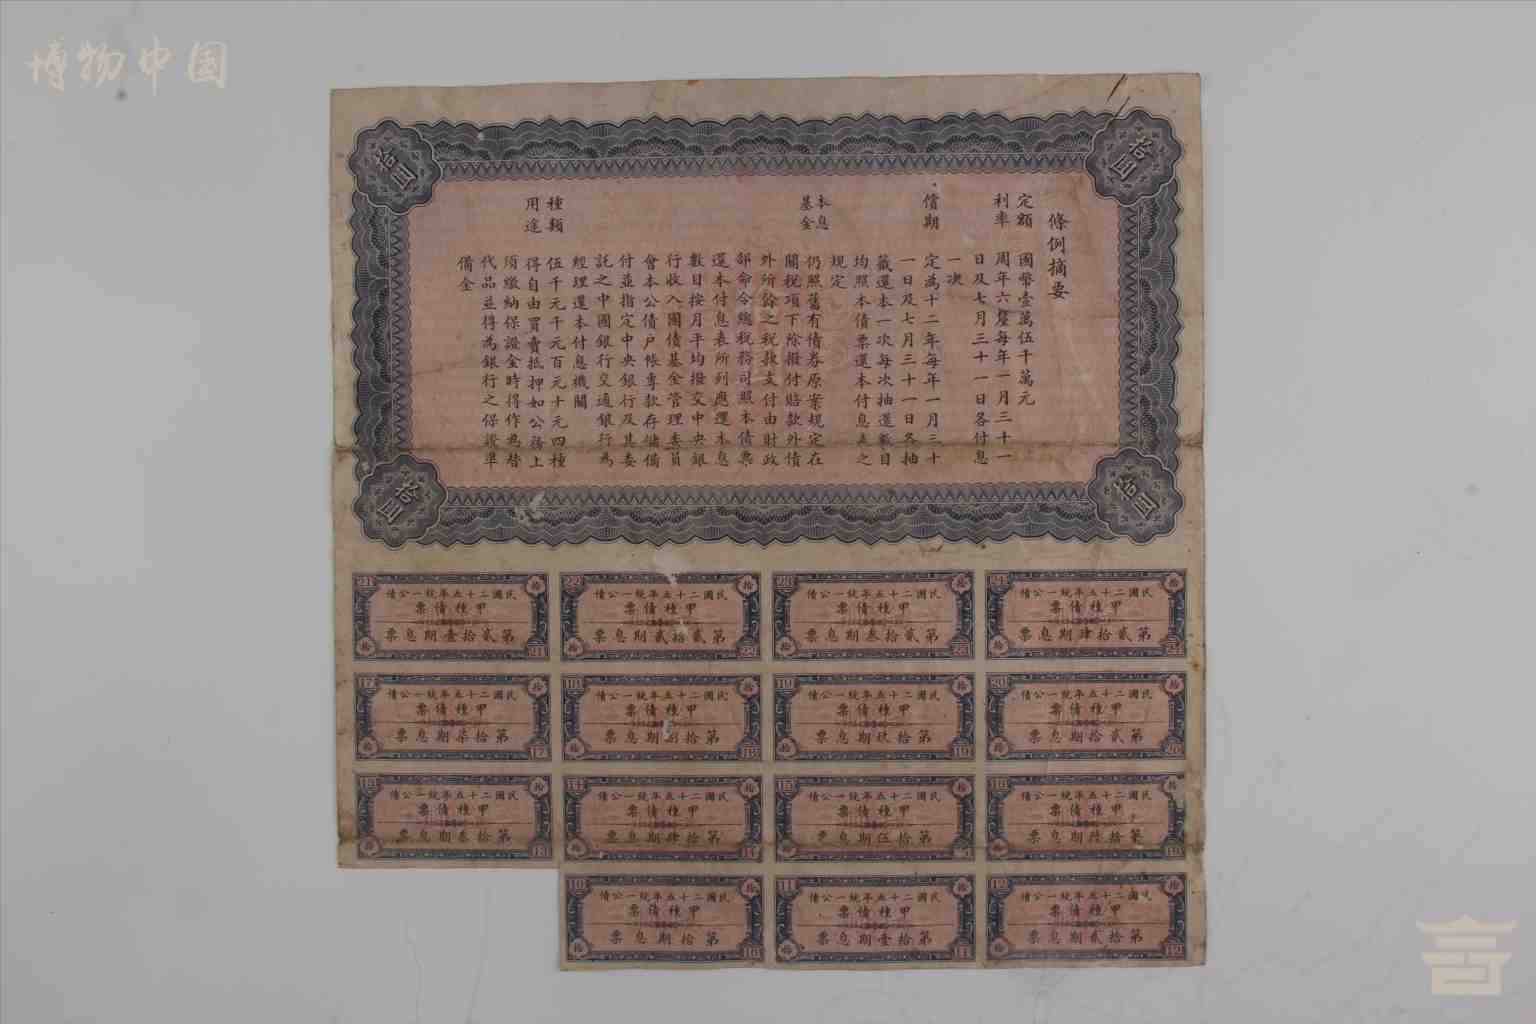 博物中国
拾圓
拾圓
條例摘要
定額 國幣壹萬伍千萬元
利率 周年六釐每年一月三十一
日及七月三十一日各付息
一次
償期 定為十二年每年一月三十
一日及七月三十一日各抽
籤還本一次每次抽還數目
均照本債票還本付息表之
規定
本息基金 仍照舊有債券原案規定在
關稅項下除撥付賠款外債
外所餘之稅款支付由財政
部命令總稅務司照本債票
還本付息表所列應還本息
數目按月平均撥交中央銀
行收入國債基金管理委員
會本公債户帳專款存儲備
付並指定中央銀行及其委
託之中國銀行交通銀行為
經理還本付息機關
種類 伍千元千元百元十元四種
用途 得自由買賣抵押如公務上
須繳納保證金時得作為替
代品並得為銀行之保證準
備金
拾圓
拾圓
24 拾
民國二十五年統一公債
甲種債票
第貳拾肆期息票
拾 24
23 拾
民國二十五年統一公債
甲種債票
第貳拾叁期息票
拾 23
22 拾
民國二十五年統一公債
甲種債票
第貳拾貳期息票
拾 22
21 拾
民國二十五年統一公債
甲種債票
第貳拾壹期息票
拾 21
20 拾
民國二十五年統一公債
甲種債票
第貳拾期息票
拾 20
19 拾
民國二十五年統一公債
甲種債票
第拾玖期息票
拾 19
18 拾
民國二十五年統一公債
甲種債票
第拾捌期息票
拾 18
17 拾
民國二十五年統一公債
甲種債票
第拾柒期息票
拾 17
16 拾
民國二十五年統一公債
甲種債票
第拾陸期息票
拾 16
15 拾
民國二十五年統一公債
甲種債票
第拾伍期息票
拾
14 拾
民國二十五年統一公債
甲種債票
第拾肆期息票
拾 14
13 拾
民國二十五年統一公債
甲種債票
第拾叁期息票
拾 13
12 拾
民國二十五年統一公債
甲種債票
第拾貳期息票
拾 12
11 拾
民國二十五年統一公債
甲種債票
第拾壹期息票
拾 11
10 拾
民國二十五年統一公債
甲種債票
第拾期息票
拾 10